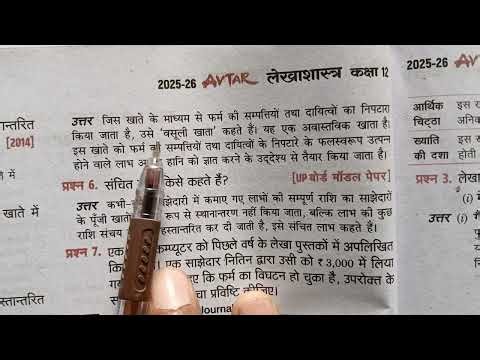 2025-26 AVTAR लेखाशास्त्र कक्षा 12
2025-26 AV
उत्तर जिस खाते के माध्यम से फर्म की सम्पत्तियों तथा दायित्वों का निपटारा
किया जाता है, उसे 'वसूली खाता' कहते हैं। यह एक अवास्तविक खाता है।
इस खाते को फर्म की सम्पत्तियों तथा दायित्वों के निपटारे के फलस्वरूप उत्पन्न
होने वाले लाभ हानि को ज्ञात करने के उद्देश्य से तैयार किया जाता है।
प्रश्न 6. संचित किसे कहते हैं? [UP बोर्ड मॉडल पेपर]
उत्तर कभी- झेदारी में कमाए गए लाभों की सम्पूर्ण राशि का साझेदारों
के पूँजी खातों रूप से स्थानान्तरण नहीं किया जाता, बल्कि लाभ की कुछ
राशि संचय स्तान्तरित कर दी जाती है, इसे संचित लाभ कहते हैं।
प्रश्न 7. एक कम्प्यूटर को पिछले वर्ष के लेखा पुस्तकों में अपलिखित
एक साझेदार नितिन द्वारा उसी को ₹ 3,000 में लिया
कि फर्म का विघटन हो चुका है, उपरोक्त के
प्रविष्टि कीजिए।
Journal
ान्तरित
[2014]
खाते में
स्तान्तरित
आर्थिक इस
चिट्ठा अनि
ख्याति इस
की दशा होती
प्रश्न 3. लेखा
(i)
उत्तर (i)